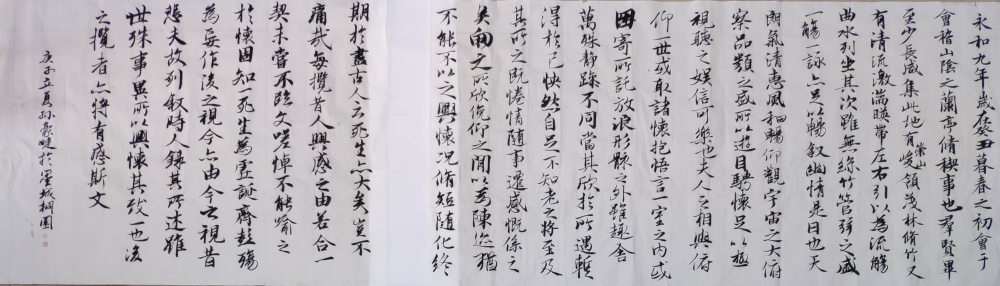 永和九年歲在癸丑暮春之初會于
會稽山陰之蘭亭脩稧事也羣賢畢
至少長咸集此地有崇山峻領茂林脩竹又
有清流激湍暎帶左右引以為流觴
曲水列坐其次雖無絲竹管弦之盛
一觴一詠亦足以暢叙幽情是日也天
朗氣清惠風和暢仰觀宇宙之大俯
察品類之盛所以遊目騁懷足以極
視聽之娛信可樂也夫人之相與俯
仰一世或取諸懷抱悟言一室之內或
因寄所託放浪形骸之外雖趣舍
萬殊靜躁不同當其欣於所遇暫
得於己怏然自足不知老之將至及
其所之既惓情隨事遷感慨係之
矣向之所欣俛仰之閒以為陳迹猶
不能不以之興懷況脩短隨化終
期於盡古人云死生亦大矣豈不
痛哉每攬昔人興感之由若合一
契未嘗不臨文嗟悼不能喻之
於懷固知一死生為虛誕齊彭殤
為妄作後之視今亦由今之視昔
悲夫故列叙時人錄其所述雖
世殊事異所以興懷其致一也後
之攬者亦將有感斯文
庚子五月孫於墨城桐園